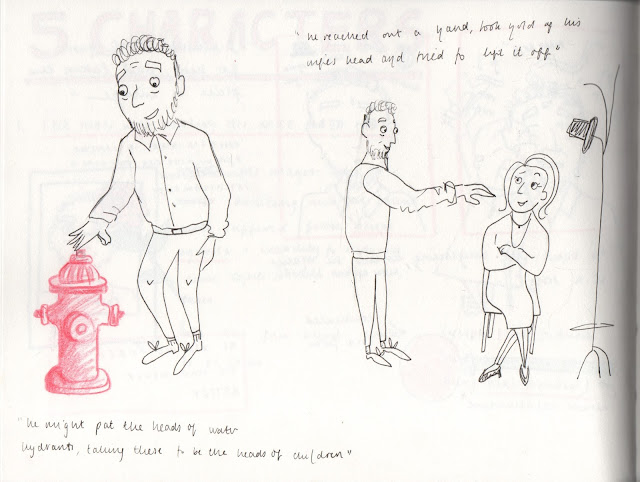 "he reached out a hand, took hold of his
wifes head and tried to lift it off"
"he might pat the heads of water
hydrants, taking these to be the heads of children"